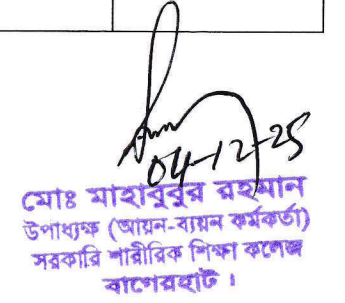 04-12-25
মোঃ মাহাবুবুর রহমান
উপাধ্যক্ষ (আয়ন-ব্যয়ন কর্মকর্তা)
সরকারি শারীরিক শিক্ষা কলেজ
বাগেরহাট।